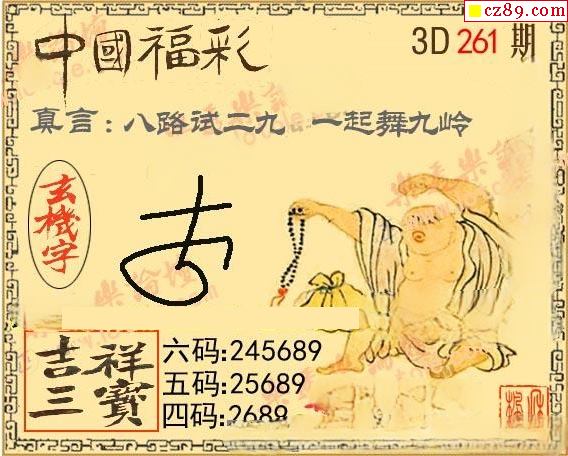 cz89.com
中國福彩
3D 261 期
真言：八路试二九 一起舞九岭
玄機字
吉祥三寳
六码:245689
五码:25689
四码:2689